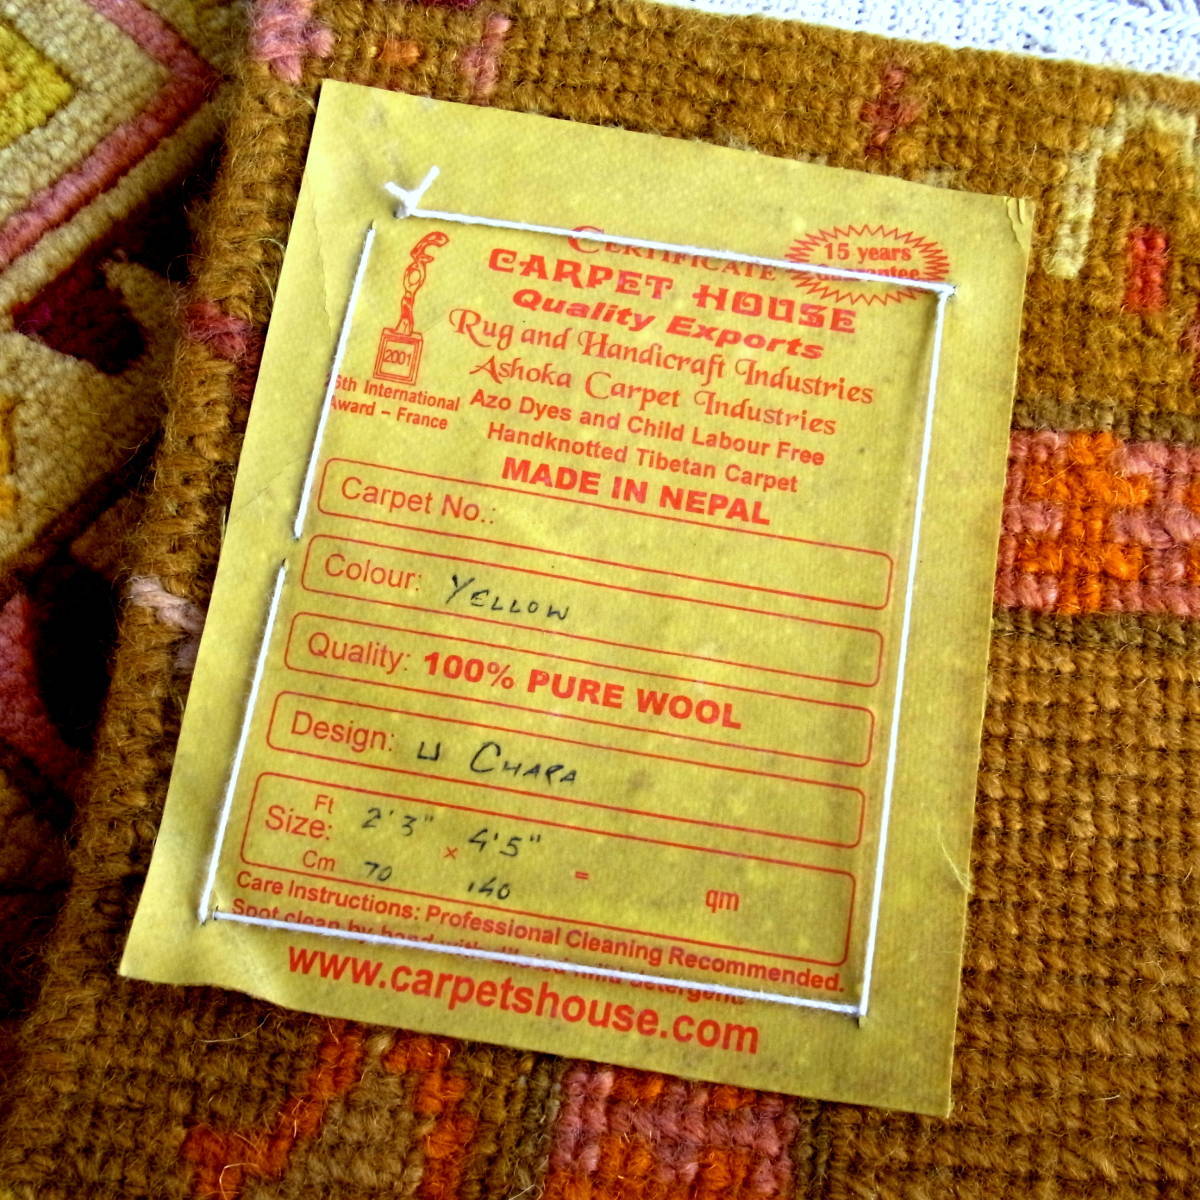 CERTIFICATE
15 years
CARPET HOUSE
Quality Exports
Rug and Handicraft Industries
Ashoka Carpet Industries
2001
6th International
Award – France
Azo Dyes and Child Labour Free
Handknotted Tibetan Carpet
MADE IN NEPAL
Carpet No.:
Colour: YELLOW
Quality: 100% PURE WOOL
Design: U CHARA
Ft 2'3" 4'5"
Size: × = qm
Cm 70 140
Care Instructions: Professional Cleaning Recommended.
Spot clean by hand with diluted mild detergent
www.carpetshouse.com